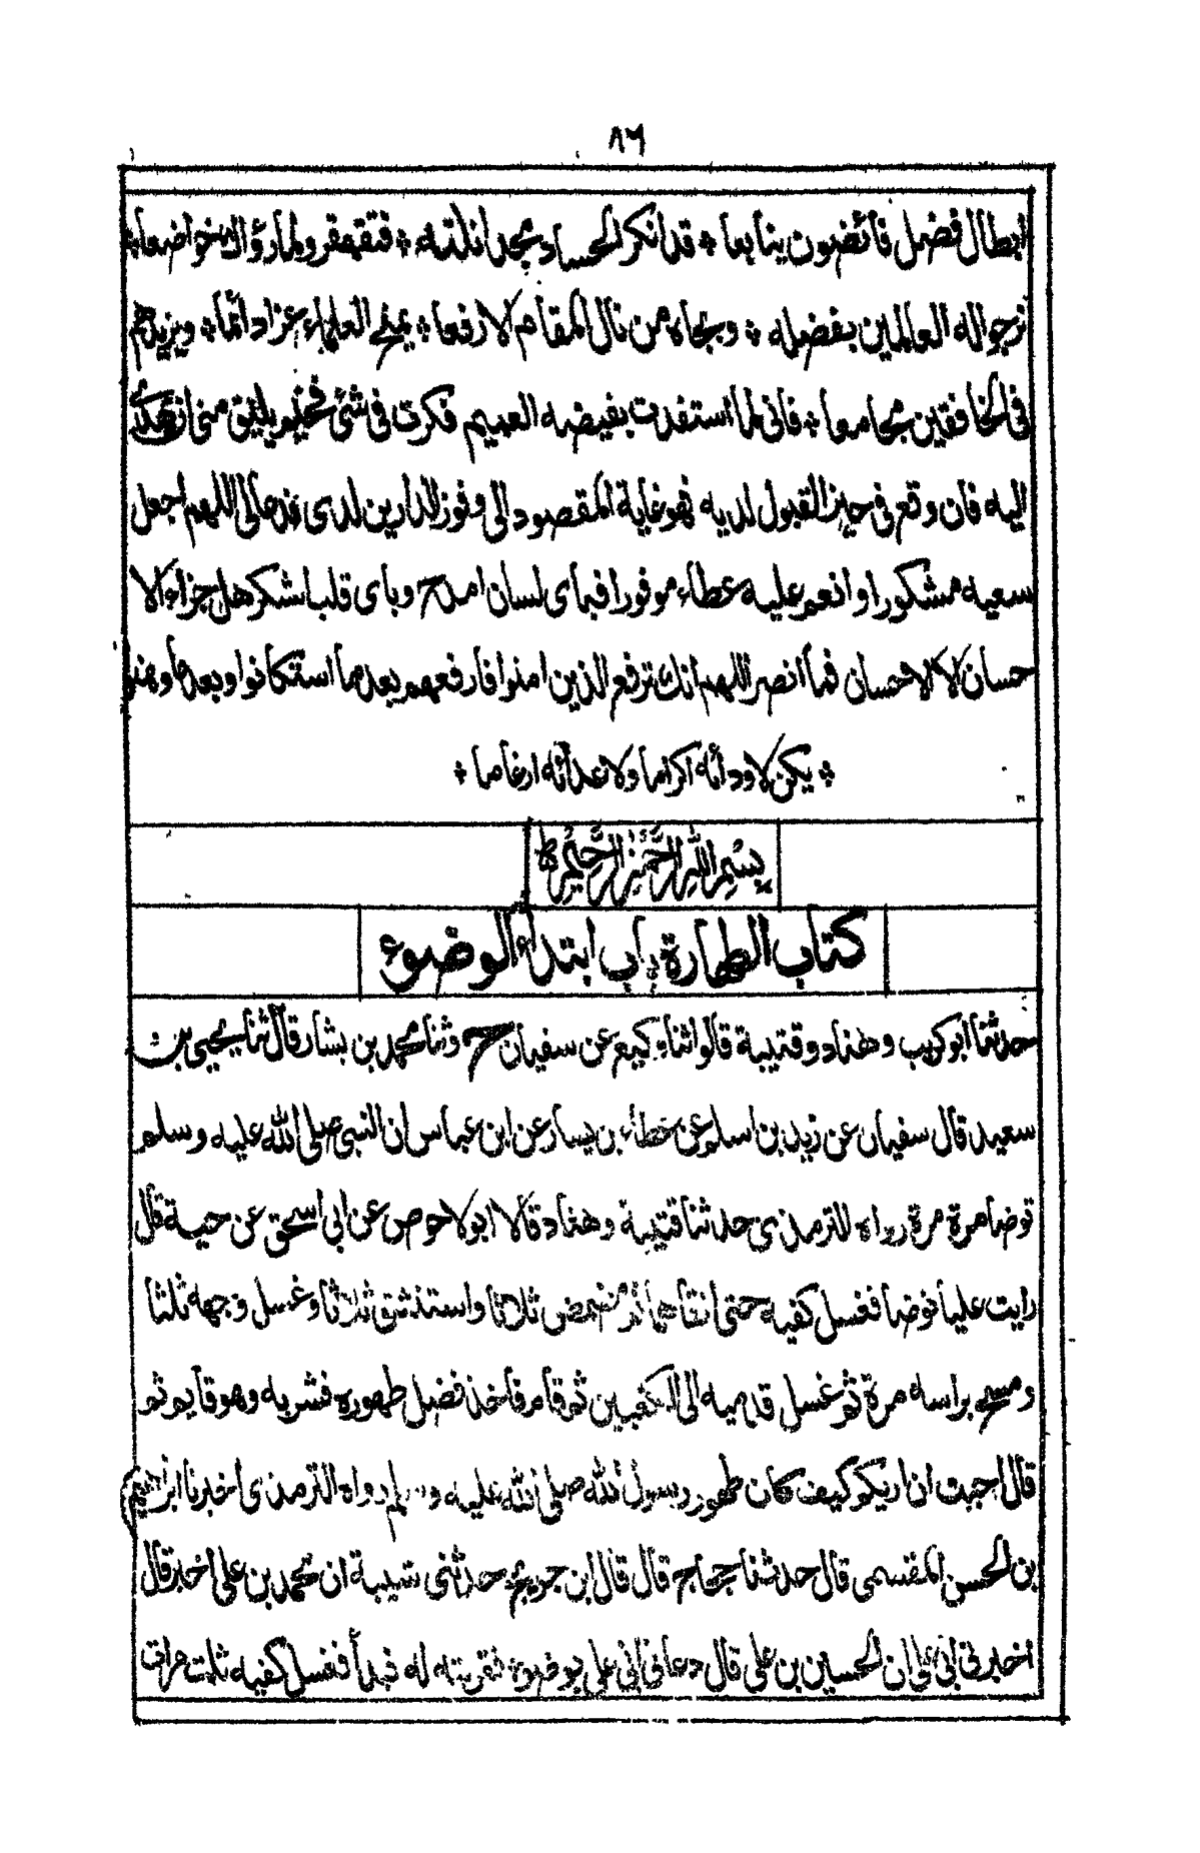 ٨٦
ابطال فضل فائضون ينابعا * قد انكر الحساد مجدا نلته * فتقهقروا لما رؤا
نرجو اله العالمين بفضله * وبجاه من نال المقام الارفعا * يمنح العلماء عزا دائما * ويزيدهم
فى الخافقين مجامعا * فانى لما استفدت بفيضه العميم فكرت فى شئ يليق منى ان
اليه فان وقع فى حيز القبول لديه فهو غاية المقصود الى وفوز الدارين لدى اللهم اجعل
سعيه مشكورا وانعم عليه عطاء موفورا فباى لسان امدح وباى قلب اشكر هل جزاء الا
حسان الا الاحسان انصر اللهم انك ترفع الذين امنوا فارفعهم بعد ما استكانوا وبعد ما
* يكن لاودائه اكراما ولاعدائه ارغاما *
بِسْمِ اللهِ الرَّحْمٰنِ الرَّحِيْمِ ط
كتاب الطهارة باب ابتداء الوضوء
حدثنا ابو كريب وهناد وقتيبة قالوا ثنا وكيع عن سفيان ح وثنا محمد بن بشار قال ثنا يحيى بن
سعيد قال سفيان عن زيد بن اسلم عن عطاء بن يسار عن ابن عباس ان النبى صلى الله عليه وسلم
توضا مرة مرة رواه للترمذى حدثنا قتيبة وهناد قالا ابو لاحوص عن ابى اسحق عن حية قال
رايت عليا توضا فغسل كفيه حتى انقاهما ثم تمضمض ثلاثا واستنشق ثلاثا وغسل وجهه ثلثا
ومسح براسه مرة ثم غسل قدميه الى الكعبين ثم قام فاخذ فضل طهوره فشربه وهو قايم ثم
قال احببت ان اريكم كيف كان طهور رسول لله صلى الله عليه وسلم رواه الترمذى اخبرنا ابراهيم
بن الحسن المقسمى قال حدثنا حجاج قال قال ابن جريج حدثنى شيبة ان محمد بن على اخبر قال
اخبرنى ابى على ان الحسين بن على قال دعانى ابى على بوضوء فقربته له فبدأ فغسل كفيه ثلث مرات